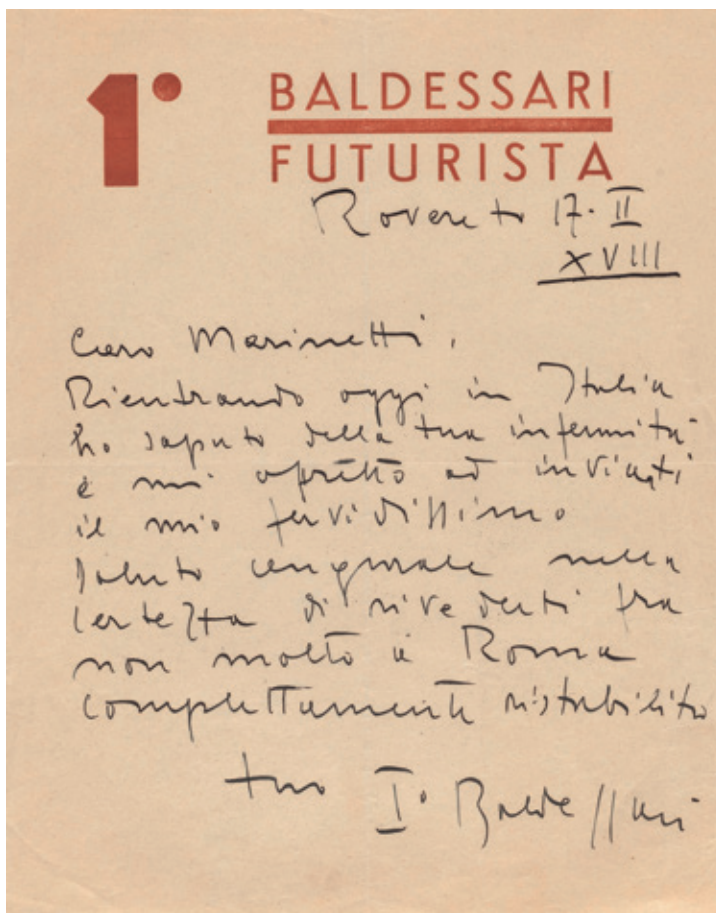 1°
BALDESSARI
FUTURISTA
Rovereto 17·II
XVIII
Caro Marinetti,
Rientrando oggi in Italia
ho saputo della tua infermità
e mi affretto ad inviarti
il mio fervidissimo
saluto augurale nella
certezza di rivederti fra
non molto a Roma
complettamente ristabilito
tuo I° Baldessari